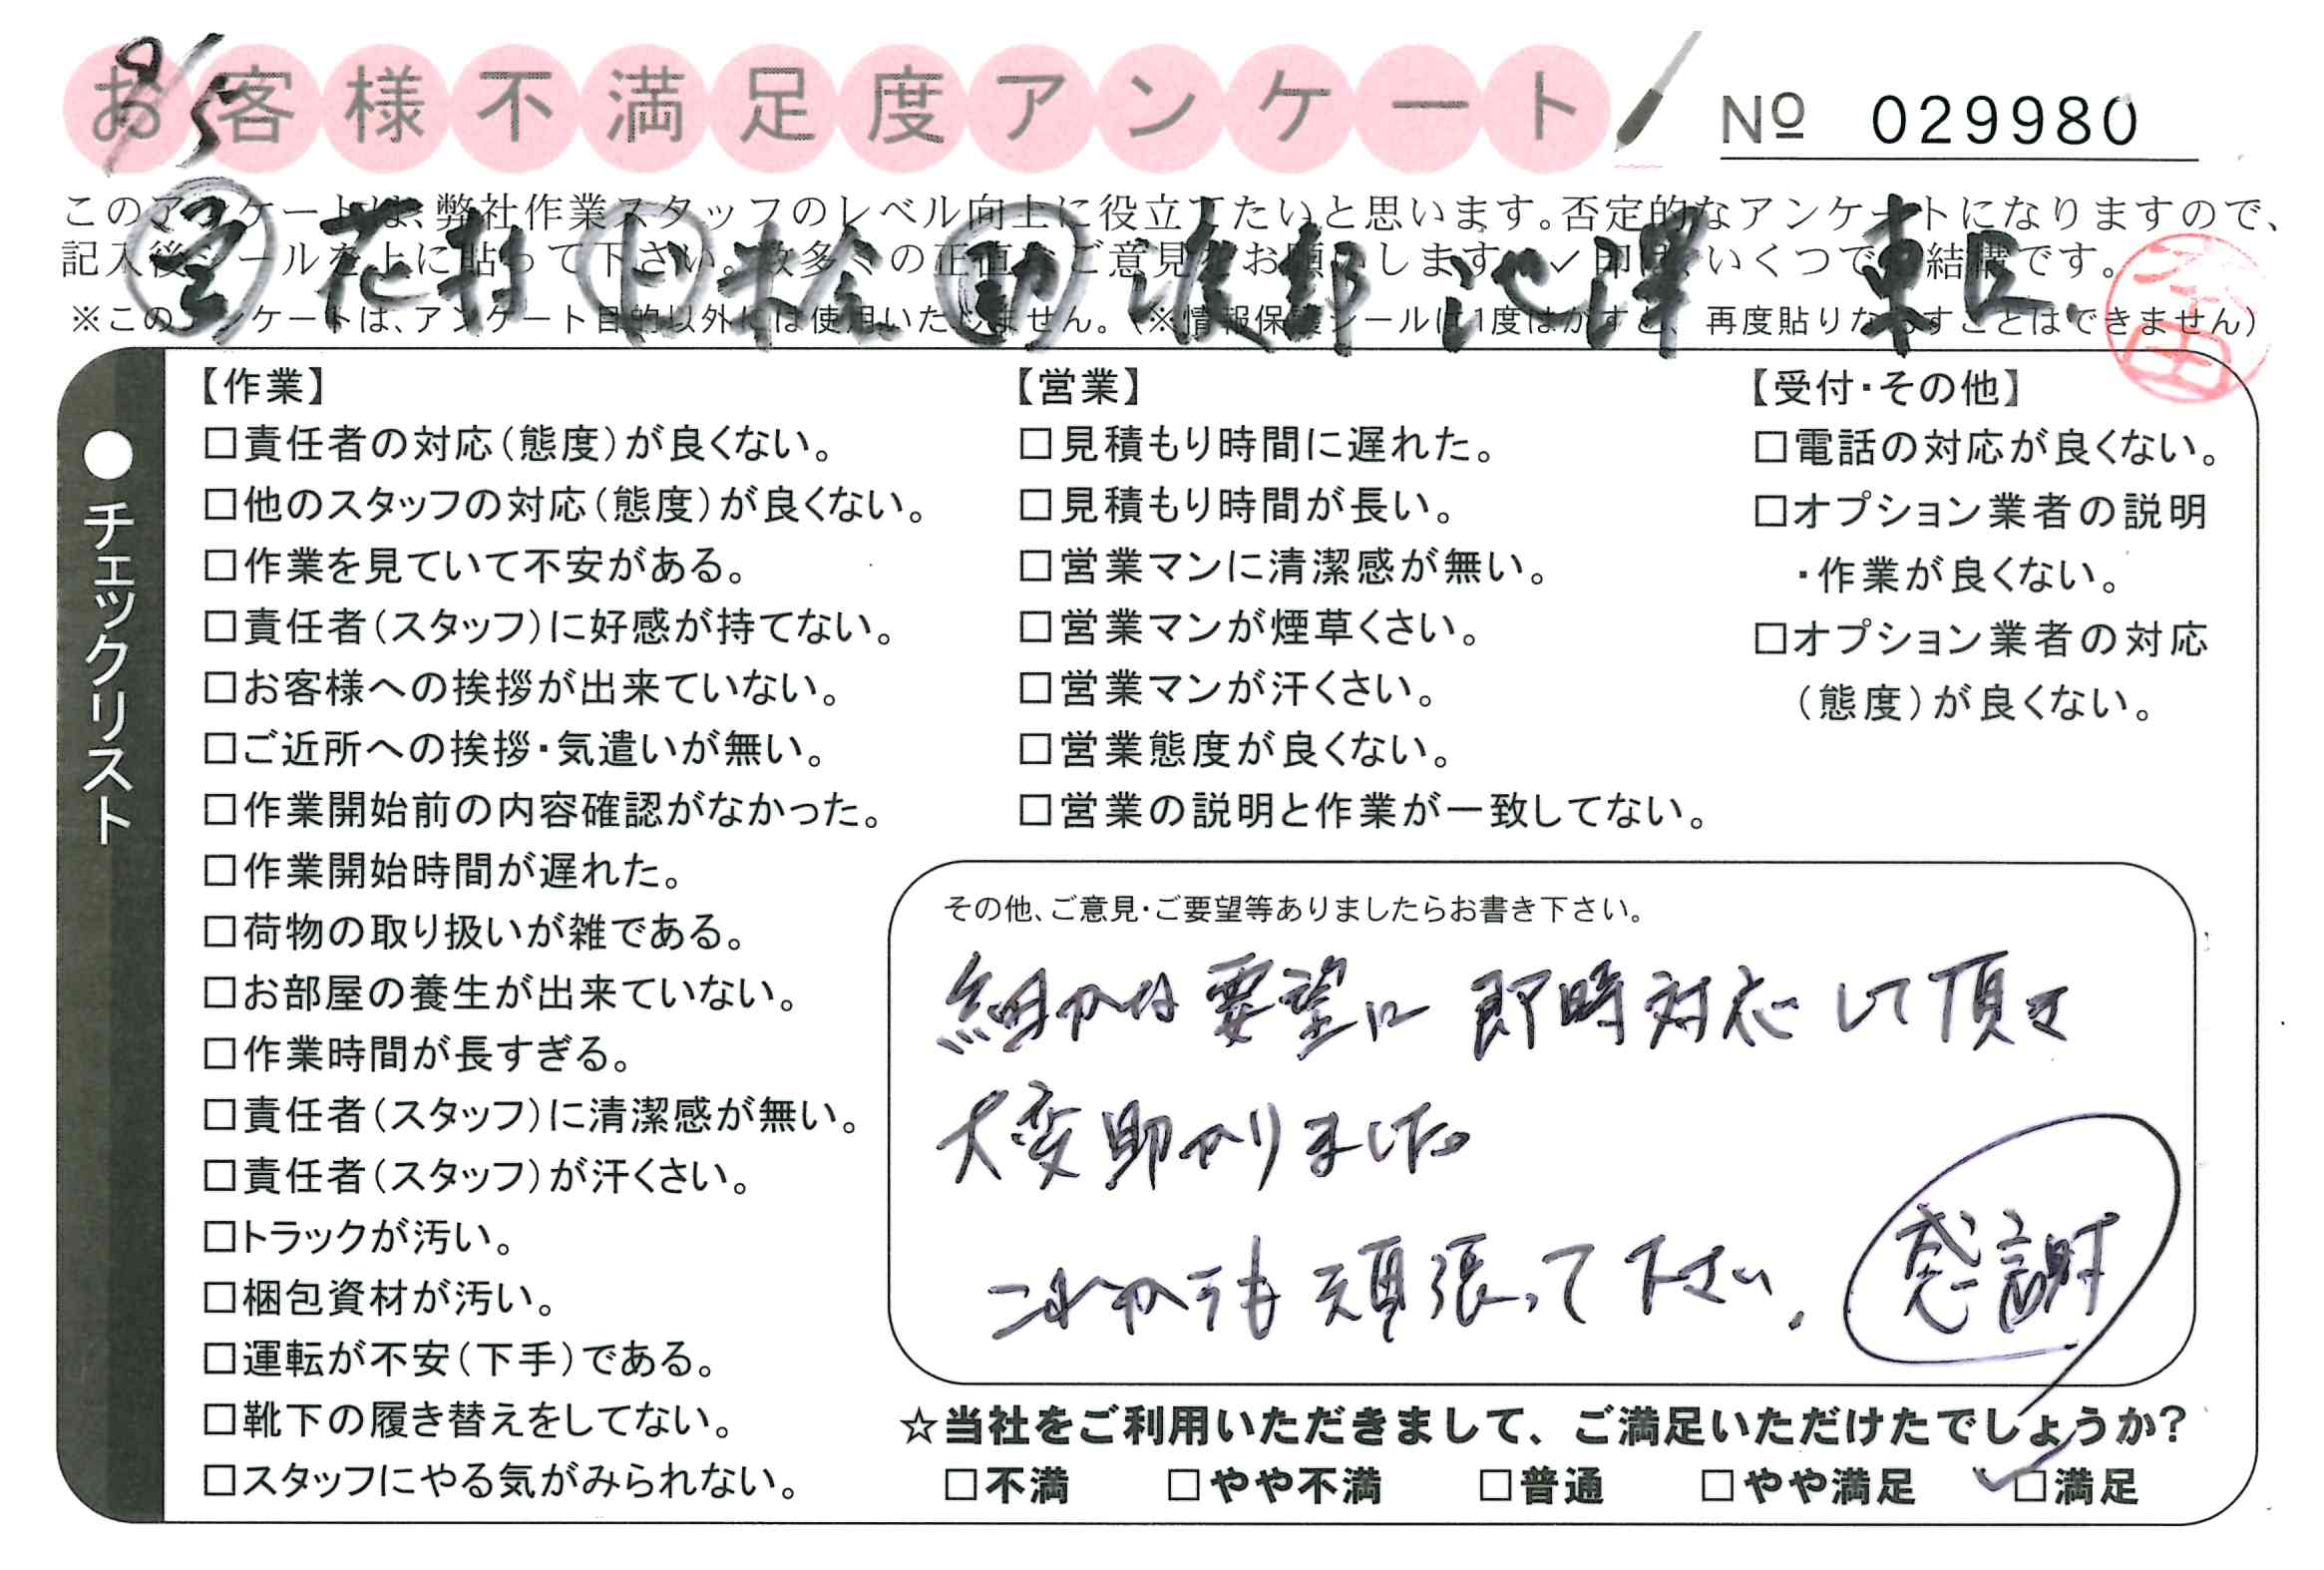 9/5
お客様不満足度アンケート
№ 029980
このアンケートは、弊社作業スタッフのレベル向上に役立てたいと思います。否定的なアンケートになりますので、
記入後シールを上に貼って下さい。数多くの正直なご意見をお願いします。✓印は、いくつでも結構です。
※このアンケートは、アンケート目的以外には使用いたしません。(※情報保護シールは1度はがすと、再度貼りなおすことはできません)
池澤 東区
チェックリスト
【作業】
□責任者の対応(態度)が良くない。
□他のスタッフの対応(態度)が良くない。
□作業を見ていて不安がある。
□責任者(スタッフ)に好感が持てない。
□お客様への挨拶が出来ていない。
□ご近所への挨拶・気遣いが無い。
□作業開始前の内容確認がなかった。
□作業開始時間が遅れた。
□荷物の取り扱いが雑である。
□お部屋の養生が出来ていない。
□作業時間が長すぎる。
□責任者(スタッフ)に清潔感が無い。
□責任者(スタッフ)が汗くさい。
□トラックが汚い。
□梱包資材が汚い。
□運転が不安(下手)である。
□靴下の履き替えをしてない。
□スタッフにやる気がみられない。
【営業】
□見積もり時間に遅れた。
□見積もり時間が長い。
□営業マンに清潔感が無い。
□営業マンが煙草くさい。
□営業マンが汗くさい。
□営業態度が良くない。
□営業の説明と作業が一致してない。
【受付・その他】
□電話の対応が良くない。
□オプション業者の説明
・作業が良くない。
□オプション業者の対応
(態度)が良くない。
その他、ご意見・ご要望等ありましたらお書き下さい。
細かな要望に即時対応して頂き
大変助かりました。
これからも頑張って下さい。 感謝
☆当社をご利用いただきまして、ご満足いただけたでしょうか?
□不満 □やや不満 □普通 □やや満足 ✓□満足